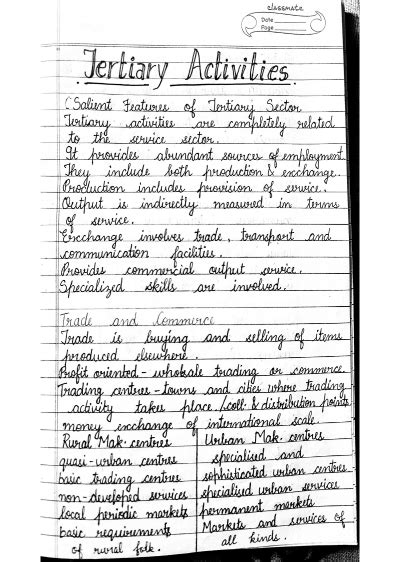 classmate
Date
Page
Tertiary Activities
(Salient Features of Tertiary Sector
Tertiary activities are completely related
to the service sector.
It provides abundant sources of employment.
They include both production & exchange.
Production includes provision of service.
Output is indirectly measured in terms
of service.
Exchange involves trade, transport and
communication facilities.
Provides commercial output service.
Specialized skills are involved.
Trade and Commerce
Trade is buying and selling of items
produced elsewhere.
Profit oriented - wholesale trading or commerce.
Trading centres - towns and cities where trading
activity takes place /coll. & distribution points
money exchange of international scale.
Rural Mak. centres
quasi-urban centres
basic trading centres
non-developed services
local periodic markets
basic requirements
of rural folk.
Urban Mak. centres
specialised and
sophisticated urban centres
specialised urban services
permanent markets
Markets and services of
all kinds.